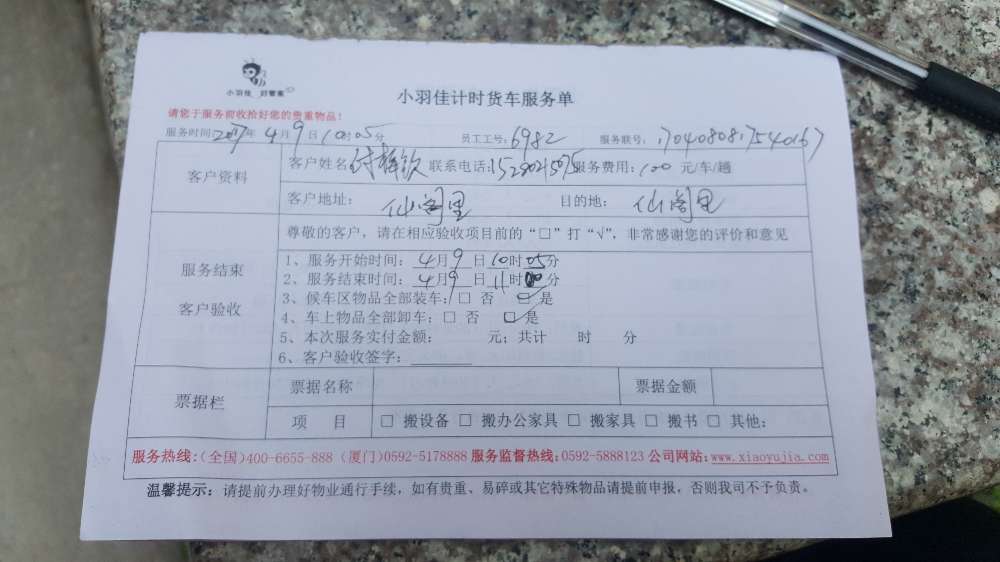 小羽佳 好管家
小羽佳计时货车服务单
请您于服务前收拾好您的贵重物品！
服务时间：2017年4月9日10时05分 员工工号：6982 服务联号：1704080817540167
客户资料
客户姓名 联系电话：服务费用：100 元/车/趟
客户地址：仙阁里 目的地：仙阁里
服务结束
客户验收
尊敬的客户，请在相应验收项目前的“□”打“√”，非常感谢您的评价和意见
1、服务开始时间：4月9日10时05分
2、服务结束时间：4月9日11时00分
3、候车区物品全部装车：□ 否 ☑ 是
4、车上物品全部卸车：□ 否 ☑ 是
5、本次服务实付金额： 元；共计 时 分
6、客户验收签字：
票据栏
票据名称 票据金额
项 目 □ 搬设备 □ 搬办公家具 □ 搬家具 □ 搬书 □ 其他：
服务热线：（全国）400-6655-888（厦门）0592-5178888 服务监督热线：0592-5888123 公司网站：www.xiaoyujia.com
温馨提示：请提前办理好物业通行手续，如有贵重、易碎或其它特殊物品请提前申报，否则我司不予负责。